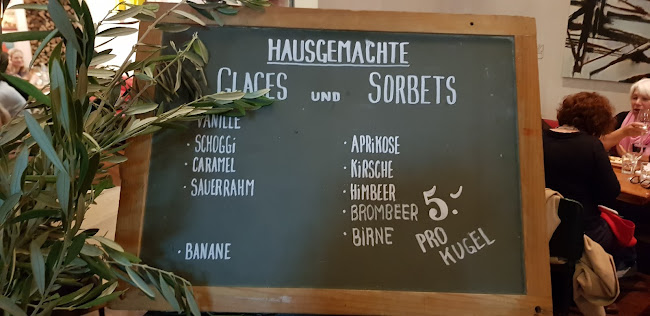 HAUSGEMACHTE
GLACES UND SORBETS
VANILLE
· SCHOGGI
· CARAMEL
· SAUERRAHM
· BANANE
· APRIKOSE
· KIRSCHE
· HIMBEER
· BROMBEER
· BIRNE
5.-
PRO
KUGEL